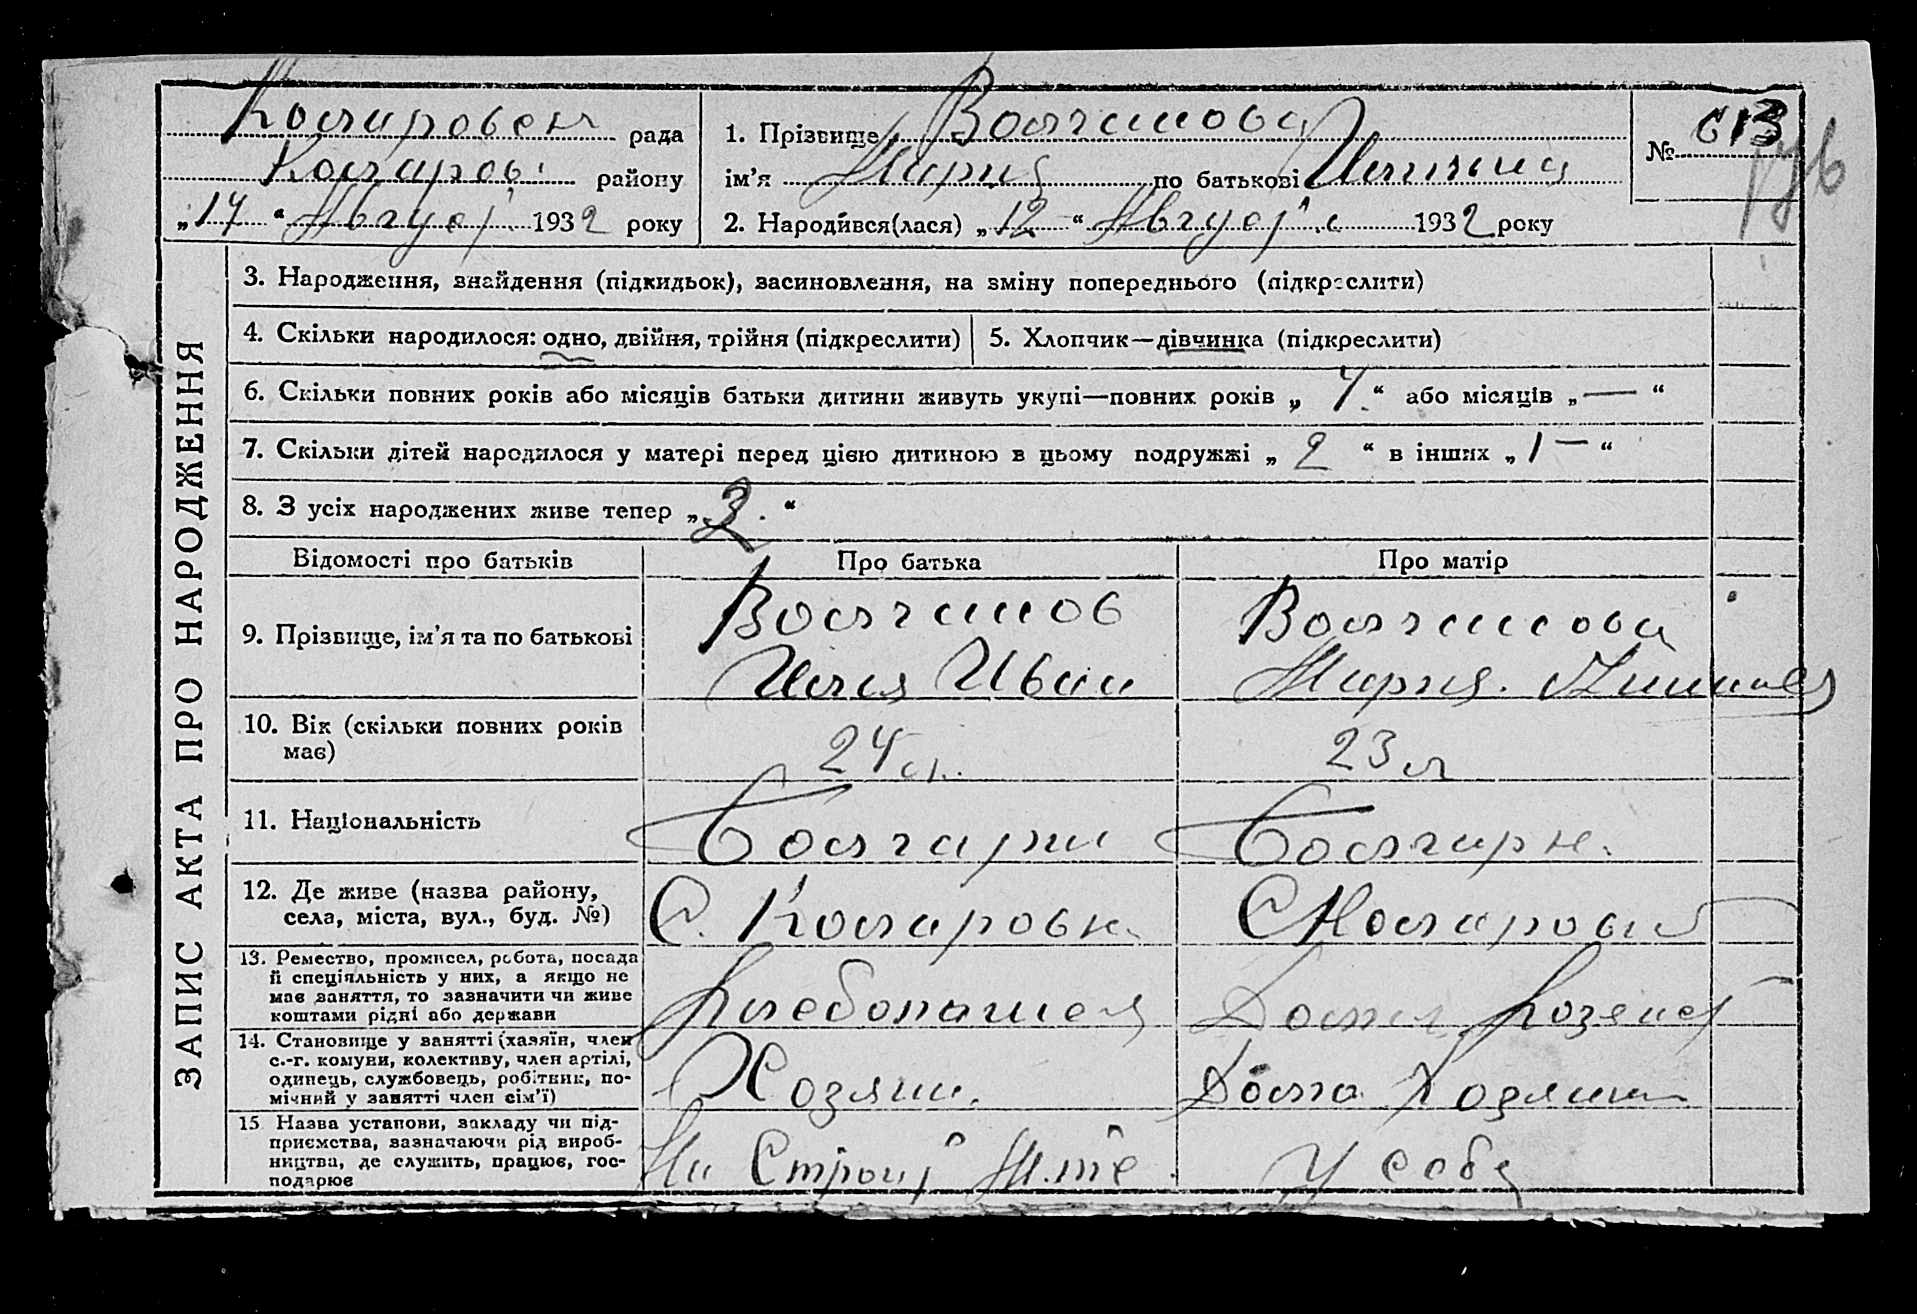 Коларовск рада
Коларов. району
„14“ Август. 1932 року
1. Прізвище Волчанова
ім’я Мария по батькові Ильинич
2. Народився(лася) „12“ Август.а 1932 року
№ 613
ЗАПИС АКТА ПРО НАРОДЖЕННЯ
3. Народження, знайдення (підкидьок), засиновлення, на зміну попереднього (підкреслити)
4. Скільки народилося: одно, двійня, трійня (підкреслити)
5. Хлопчик—дівчинка (підкреслити)
6. Скільки повних років або місяців батьки дитини живуть укупі—повних років „4.“ або місяців „—“
7. Скільки дітей народилося у матері перед цією дитиною в цьому подружжі „2“ в інших „1 —“
8. З усіх народжених живе тепер „3.“
Відомості про батьків Про батька Про матір
9. Прізвище, ім’я та по батькові
Волчанов
Илия Иван
Волчанова
Мария.
10. Вік (скільки повних років
має)
24 л.
23 л
11. Національність
Болгарин
Болгарк.
12. Де живе (назва району,
села, міста, вул., буд. №)
С. Коларовк.
С Коларовка
13. Ремество, промисел, робота, посада
й спеціяльність у них, а якщо не
має заняття, то зазначити чи живе
коштами рідні або держави
Хлебопашец
Дома Хозяйст
14. Становище у занятті (хазяїн, член
с.-г. комуни, колективу, член артілі,
одинець, службовець, робітник, по-
мічний у занятті член сім’ї)
Хозяин.
Дома Хозяин
15 Назва установи, закладу чи під-
приємства, зазначаючи рід вироб-
ництва, де служить, працює, гос-
подарює
На Строй
У себя